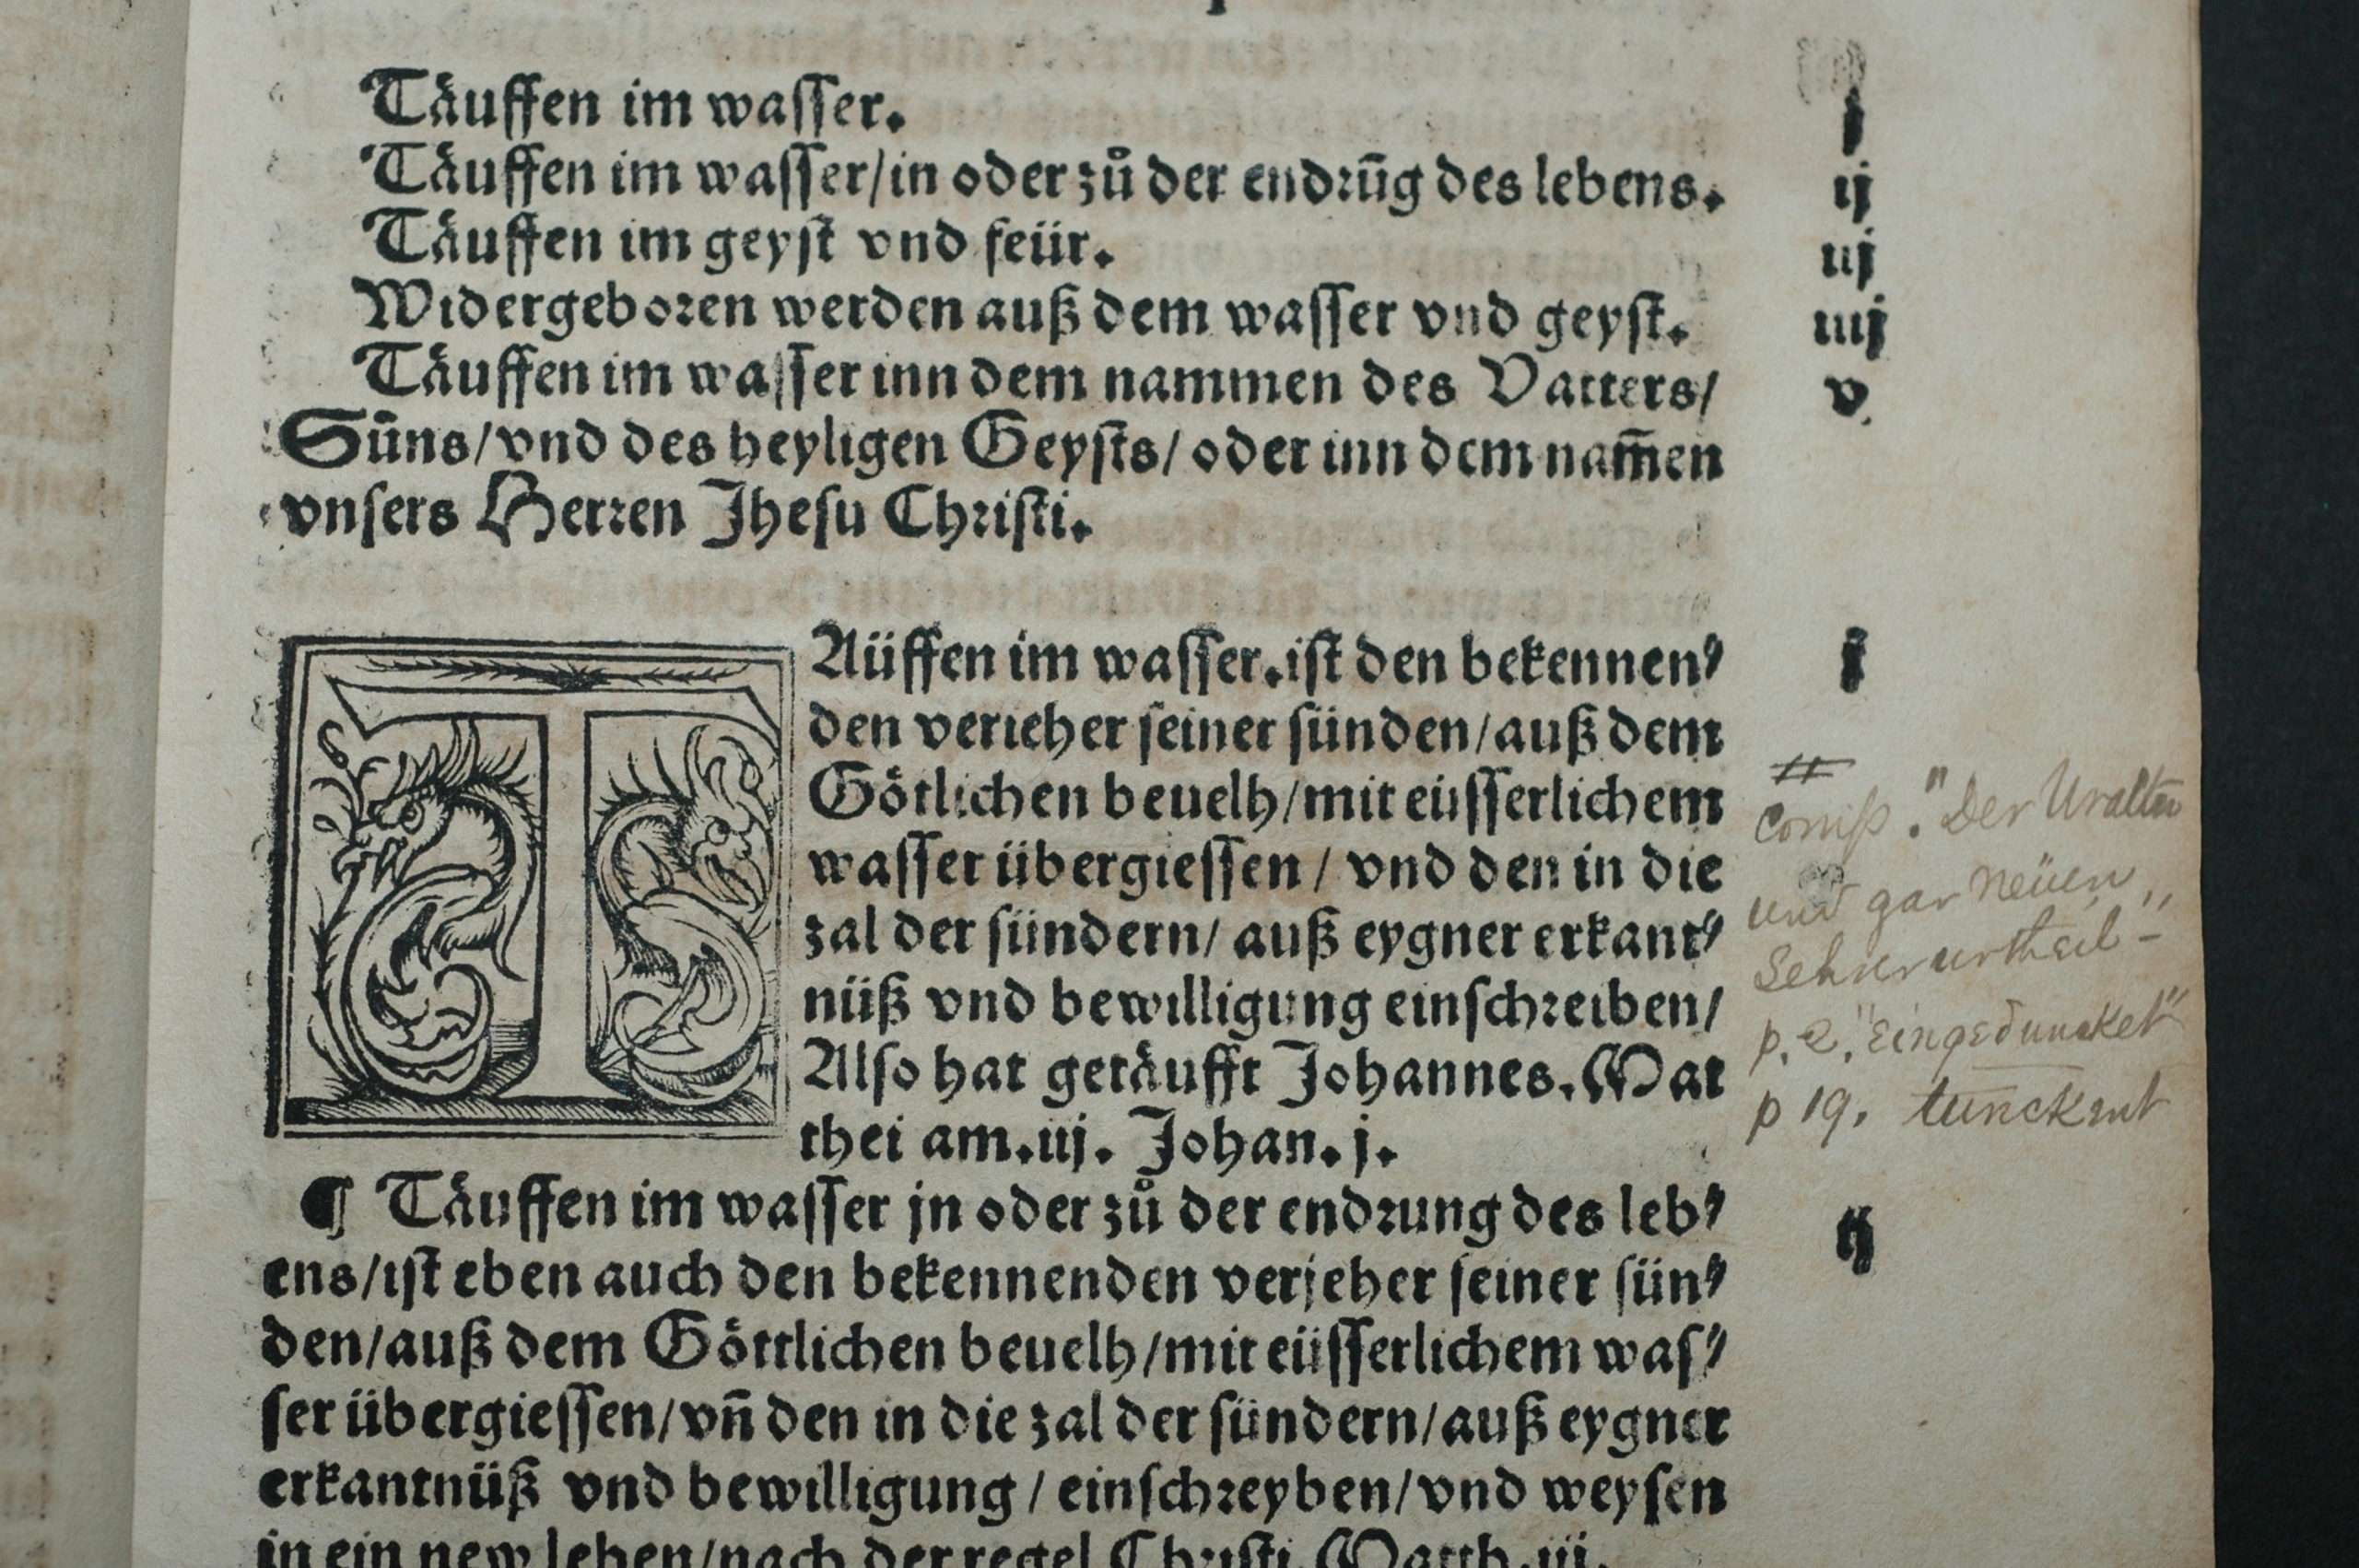 Täuffen im wasser. j
Täuffen im wasser/in oder zů der endrūg des lebens. ij
Täuffen im geyst vnd feür. iij
Widergeboren werden auß dem wasser vnd geyst. iiij
Täuffen im wasser inn dem nammen des Vatters/ v
Süns/vnd des heyligen Geysts/ oder inn dem nam̄en
vnsers Herren Jhesu Christi.
TAüffen im wasser.ist den bekennen⸗ j
den verieher seiner sünden/auß dem
Götlichen beuelh/mit eüsserlichem
wasser übergiessen/ vnd den in die
zal der sündern/ auß eygner erkant⸗
nüß vnd bewilligung einschreiben/
Also hat getäufft Johannes. Mat
thei am.iij. Johan. j.
"Der Uralten
und gar neüen
p. 2. "eingeduncket"
p 19. tunckent
¶ Täuffen im wasser jn oder zů der endrung des leb⸗ ij
ens/ist eben auch den bekennenden verjeher seiner sün⸗
den/auß dem Göttlichen beuelh/mit eüsserlichem was⸗
ser übergiessen/vn̄ den in die zal der sündern/auß eygner
erkantnüß vnd bewilligung / einschreyben/vnd weysen
in ein new leben/nach der regel Christi. Matth. iij.